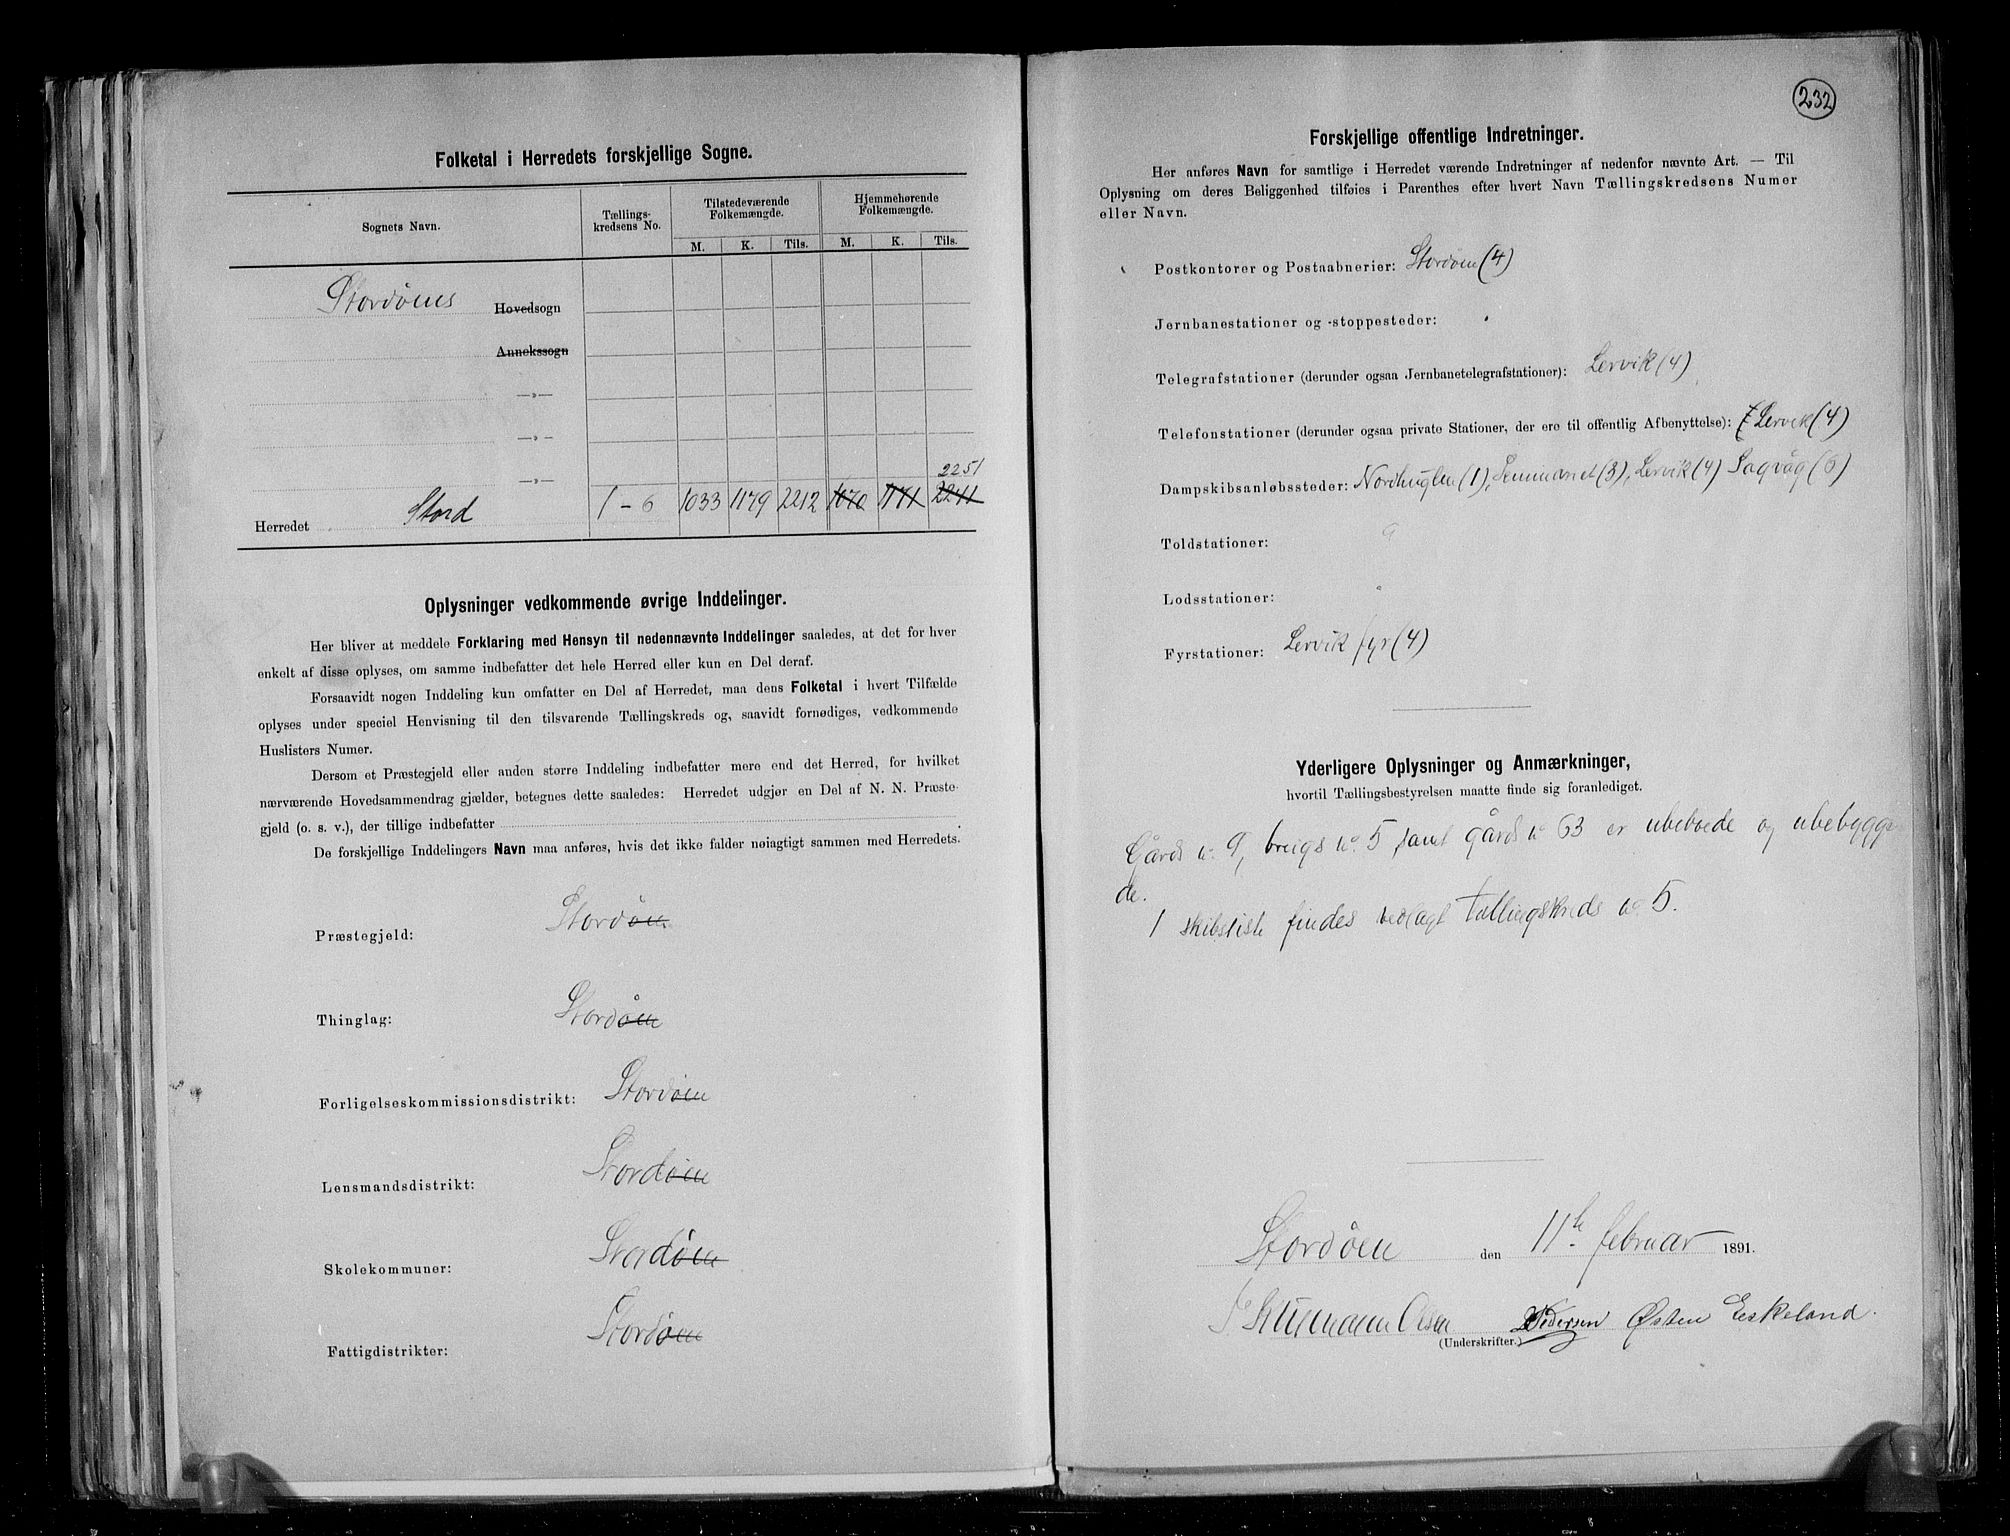 Folketal i Herredets forskjellige Sogne.
Sognets Navn.
Tællings-
kredsens No.
Tilstedeværende
Folkemængde.
Hjemmehørende
Folkemængde.
M. K. Tils. M. K. Tils.
Stordøens Hovedsogn
Annekssogn
—»—
—»—
—»—
2251
Herredet Stord 1-6 1033 1179 2212 1070 1171 2241
Oplysninger vedkommende øvrige Inddelinger.
Her bliver at meddele Forklaring med Hensyn til nedennævnte Inddelinger saaledes, at det for hver
enkelt af disse oplyses, om samme indbefatter det hele Herred eller kun en Del deraf.
Forsaavidt nogen Inddeling kun omfatter en Del af Herredet, maa dens Folketal i hvert Tilfælde
oplyses under speciel Henvisning til den tilsvarende Tællingskreds og, saavidt fornødiges, vedkommende
Huslisters Numer.
Dersom et Præstegjeld eller anden større Inddeling indbefatter mere end det Herred, for hvilket
nærværende Hovedsammendrag gjælder, betegnes dette saaledes: Herredet udgjør en Del af N. N. Præste-
gjeld (o. s. v.), der tillige indbefatter
De forskjellige Inddelingers Navn maa anføres, hvis det ikke falder nøiagtigt sammen med Herredets.
Præstegjeld: Stordøen
Thinglag: Stordøen
Forligelseskommissionsdistrikt: Stordøen
Lensmandsdistrikt: Stordøen
Skolekommuner: Stordøen
Fattigdistrikter: Stordøen
232
Forskjellige offentlige Indretninger.
Her anføres Navn for samtlige i Herredet værende Indretninger af nedenfor nævnte Art. — Til
Oplysning om deres Beliggenhed tilføies i Parenthes efter hvert Navn Tællingskredsens Numer
eller Navn.
Postkontorer og Postaabnerier: Stordøen (4)
Jernbanestationer og -stoppesteder:
Telegrafstationer (derunder ogsaa Jernbanetelegrafstationer): Lervik (4)
Telefonstationer (derunder ogsaa private Stationer, der ere til offentlig Afbenyttelse): Lervik (4)
Dampskibsanløbssteder: Nordhuglen (1), Seminariet (3), Lervik (4) Sagvåg (6)
Toldstationer:
Lodsstationer:
Fyrstationer: Lervik fyr (4)
Yderligere Oplysninger og Anmærkninger,
hvortil Tællingsbestyrelsen maatte finde sig foranlediget.
Gårds no. 9, brugs no. 5, samt gårds no 63 er ubeboede og ubebygge-
de.
1 skibsliste findes vedlagt tællingskreds no. 5.
Stordøen den 11te februar 1891.
Olsen Pedersen Østen Eskeland.
(Underskrifter.)